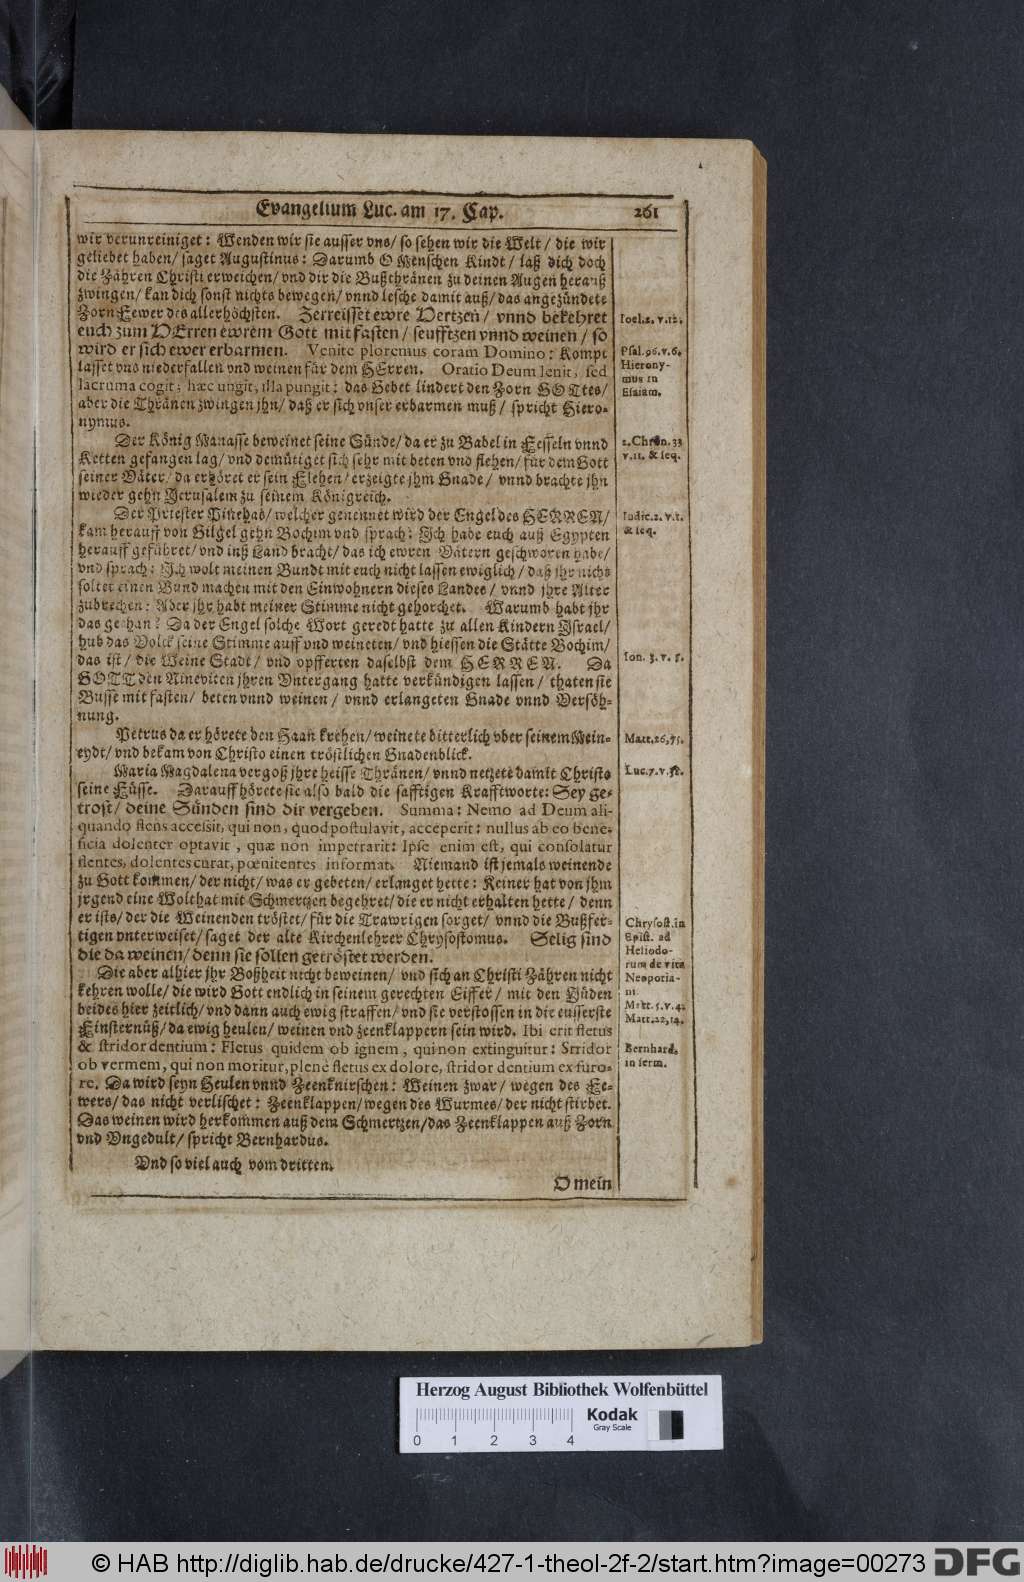 Evangelium Luc. am 17. Cap. 261
wir verunreiniget: Wenden wir sie ausser vns/ so sehen wir die Welt/ die wir
geliebet haben/ saget Augustinus: Darumb O Menschen Kindt/ laß dich doch
die Zähren Christi erweichen/ vnd dir die Bußthränen zu deinen Augen herauß
zwingen/ kan dich sonst nichts bewegen/ vnnd lesche damit auß/ das angezündete
ZornFewer des allerhöchsten. Zerreisset ewre Hertzen/ vnnd bekehret
euch zum HErren ewrem Gott mit fasten/ seufftzen vnnd weinen/ so
wird er sich ewer erbarmen. Venite ploremus coram Domino: Kompt
lasset vns niederfallen vnd weinen für dem HErren. Oratio Deum lenit, sed
lacruma cogit; hæc ungit, illa pungit: das Gebet lindert den Zorn GOttes/
aber die Thränen zwingen jhn/ daß er sich vnser erbarmen muß/ spricht Hiero-
nymus.
Der König Manasse beweinet seine Sünde/ da er zu Babel in Fesseln vnnd
Ketten gefangen lag/ vnd demütiget sich sehr mit beten vnd flehen/ für dem Gott
seiner Väter/ da erhöret er sein Flehen/ erzeigte jhm Gnade/ vnnd brachte jhn
wieder gehn Jerusalem zu seinem Königreich.
Der Priester Pinehas/ welcher genennet wird der Engel des HERREN/
kam herauff von Gilgel gehn Bochim vnd sprach: Ich habe euch auß Egypten
herauff geführet/ vnd inß Land bracht/ das ich ewren Vätern geschworen habe/
vnd sprach: Ich wolt meinen Bundt mit euch nicht lassen ewiglich/ daß jhr nichs
soltet einen Bund machen mit den Einwohnern dieses Landes/ vnnd jhre Alter
zubrechen: Aber jhr habt meiner Stimme nicht gehorchet. Warumb habt jhr
das gethan? Da der Engel solche Wort geredt hatte zu allen Kindern Israel/
hub das Volck seine Stimme auff vnd weineten/ vnd hiessen die Stätte Bochim/
das ist/ die Weine Stadt/ vnd opfferten daselbst dem HERREN. Da
GOTT den Nineviten jhren Vntergang hatte verkündigen lassen/ thaten sie
Busse mit fasten/ beten vnnd weinen/ vnnd erlangeten Gnade vnnd Versöh-
nung.
Petrus da er hörete den Haan krehen/ weinete bitterlich vber seinem Mein-
eydt/ vnd bekam von Christo einen tröstlichen Gnadenblick.
Maria Magdalena vergoß jhre heisse Thränen/ vnnd netzete damit Christo
seine Füsse. Darauff hörete sie also bald die safftigen Krafftworte: Sey ge-
trost/ deine Sünden sind dir vergeben. Summa: Nemo ad Deum ali-
quando flens accessit, qui non, quod postulavit, acceperit: nullus ab eo bene-
ficia dolenter optavit, quæ non impetrarit: Ipse enim est, qui consolatur
flentes, dolentes curat, pœnitentes informat. Niemand ist jemals weinende
zu Gott kommen/ der nicht/ was er gebeten/ erlanget hette: Keiner hat von jhm
jrgend eine Wolthat mit Schmertzen begehret/ die er nicht erhalten hette/ denn
er ists/ der die Weinenden tröstet/ für die Trawrigen sorget/ vnnd die Bußfer-
tigen vnterweiset/ saget der alte Kirchenlehrer Chrysostomus. Selig sind
die da weinen/ denn sie sollen getröstet werden.
Die aber alhier jhr Boßheit nicht beweinen/ vnd sich an Christi Zähren nicht
kehren wolle/ die wird Gott endlich in seinem gerechten Eiffer/ mit den Jüden
beides hier zeitlich/ vnd dann auch ewig straffen/ vnd sie verstossen in die eusserste
Finsternüß/ da ewig heulen/ weinen vnd zeenklappern sein wird. Ibi erit fletus
& stridor dentium: Fletus quidem ob ignem, qui non extinguitur: Stridor
ob vermem, qui non moritur, plenè fletus ex dolore, stridor dentium ex furo-
re. Da wird seyn Heulen vnnd Zeenknirschen: Weinen zwar/ wegen des Fe-
wers/ das nicht verlischet: Zeenklappen/ wegen des Wurmes/ der nicht stirbet.
Das weinen wird herkommen auß dem Schmertzen/ das Zeenklappen auß Zorn
vnd Vngedult/ spricht Bernhardus.
Vnd so viel auch vom dritten.
O mein
Ioel. 2. v. 12.
Psal. 96. v. 6.
Hierony-
mus in
Esaiam.
2. Chron. 33
v. 11. & seq.
Iudic. 2. v. 1.
& seq.
Ion. 3. v. 5.
Matt. 26, 75.
Luc. 7. v. 38.
Chrysost. in
Epist. ad
Heliodo-
rum de vita
Nepotia-
ni
Matt. 5. v. 4.
Matt. 22, 14.
Bernhard.
in serm.
Herzog August Bibliothek Wolfenbüttel
Kodak
Gray Scale
0 1 2 3 4
© HAB http://diglib.hab.de/drucke/427-1-theol-2f-2/start.htm?image=00273 DFG